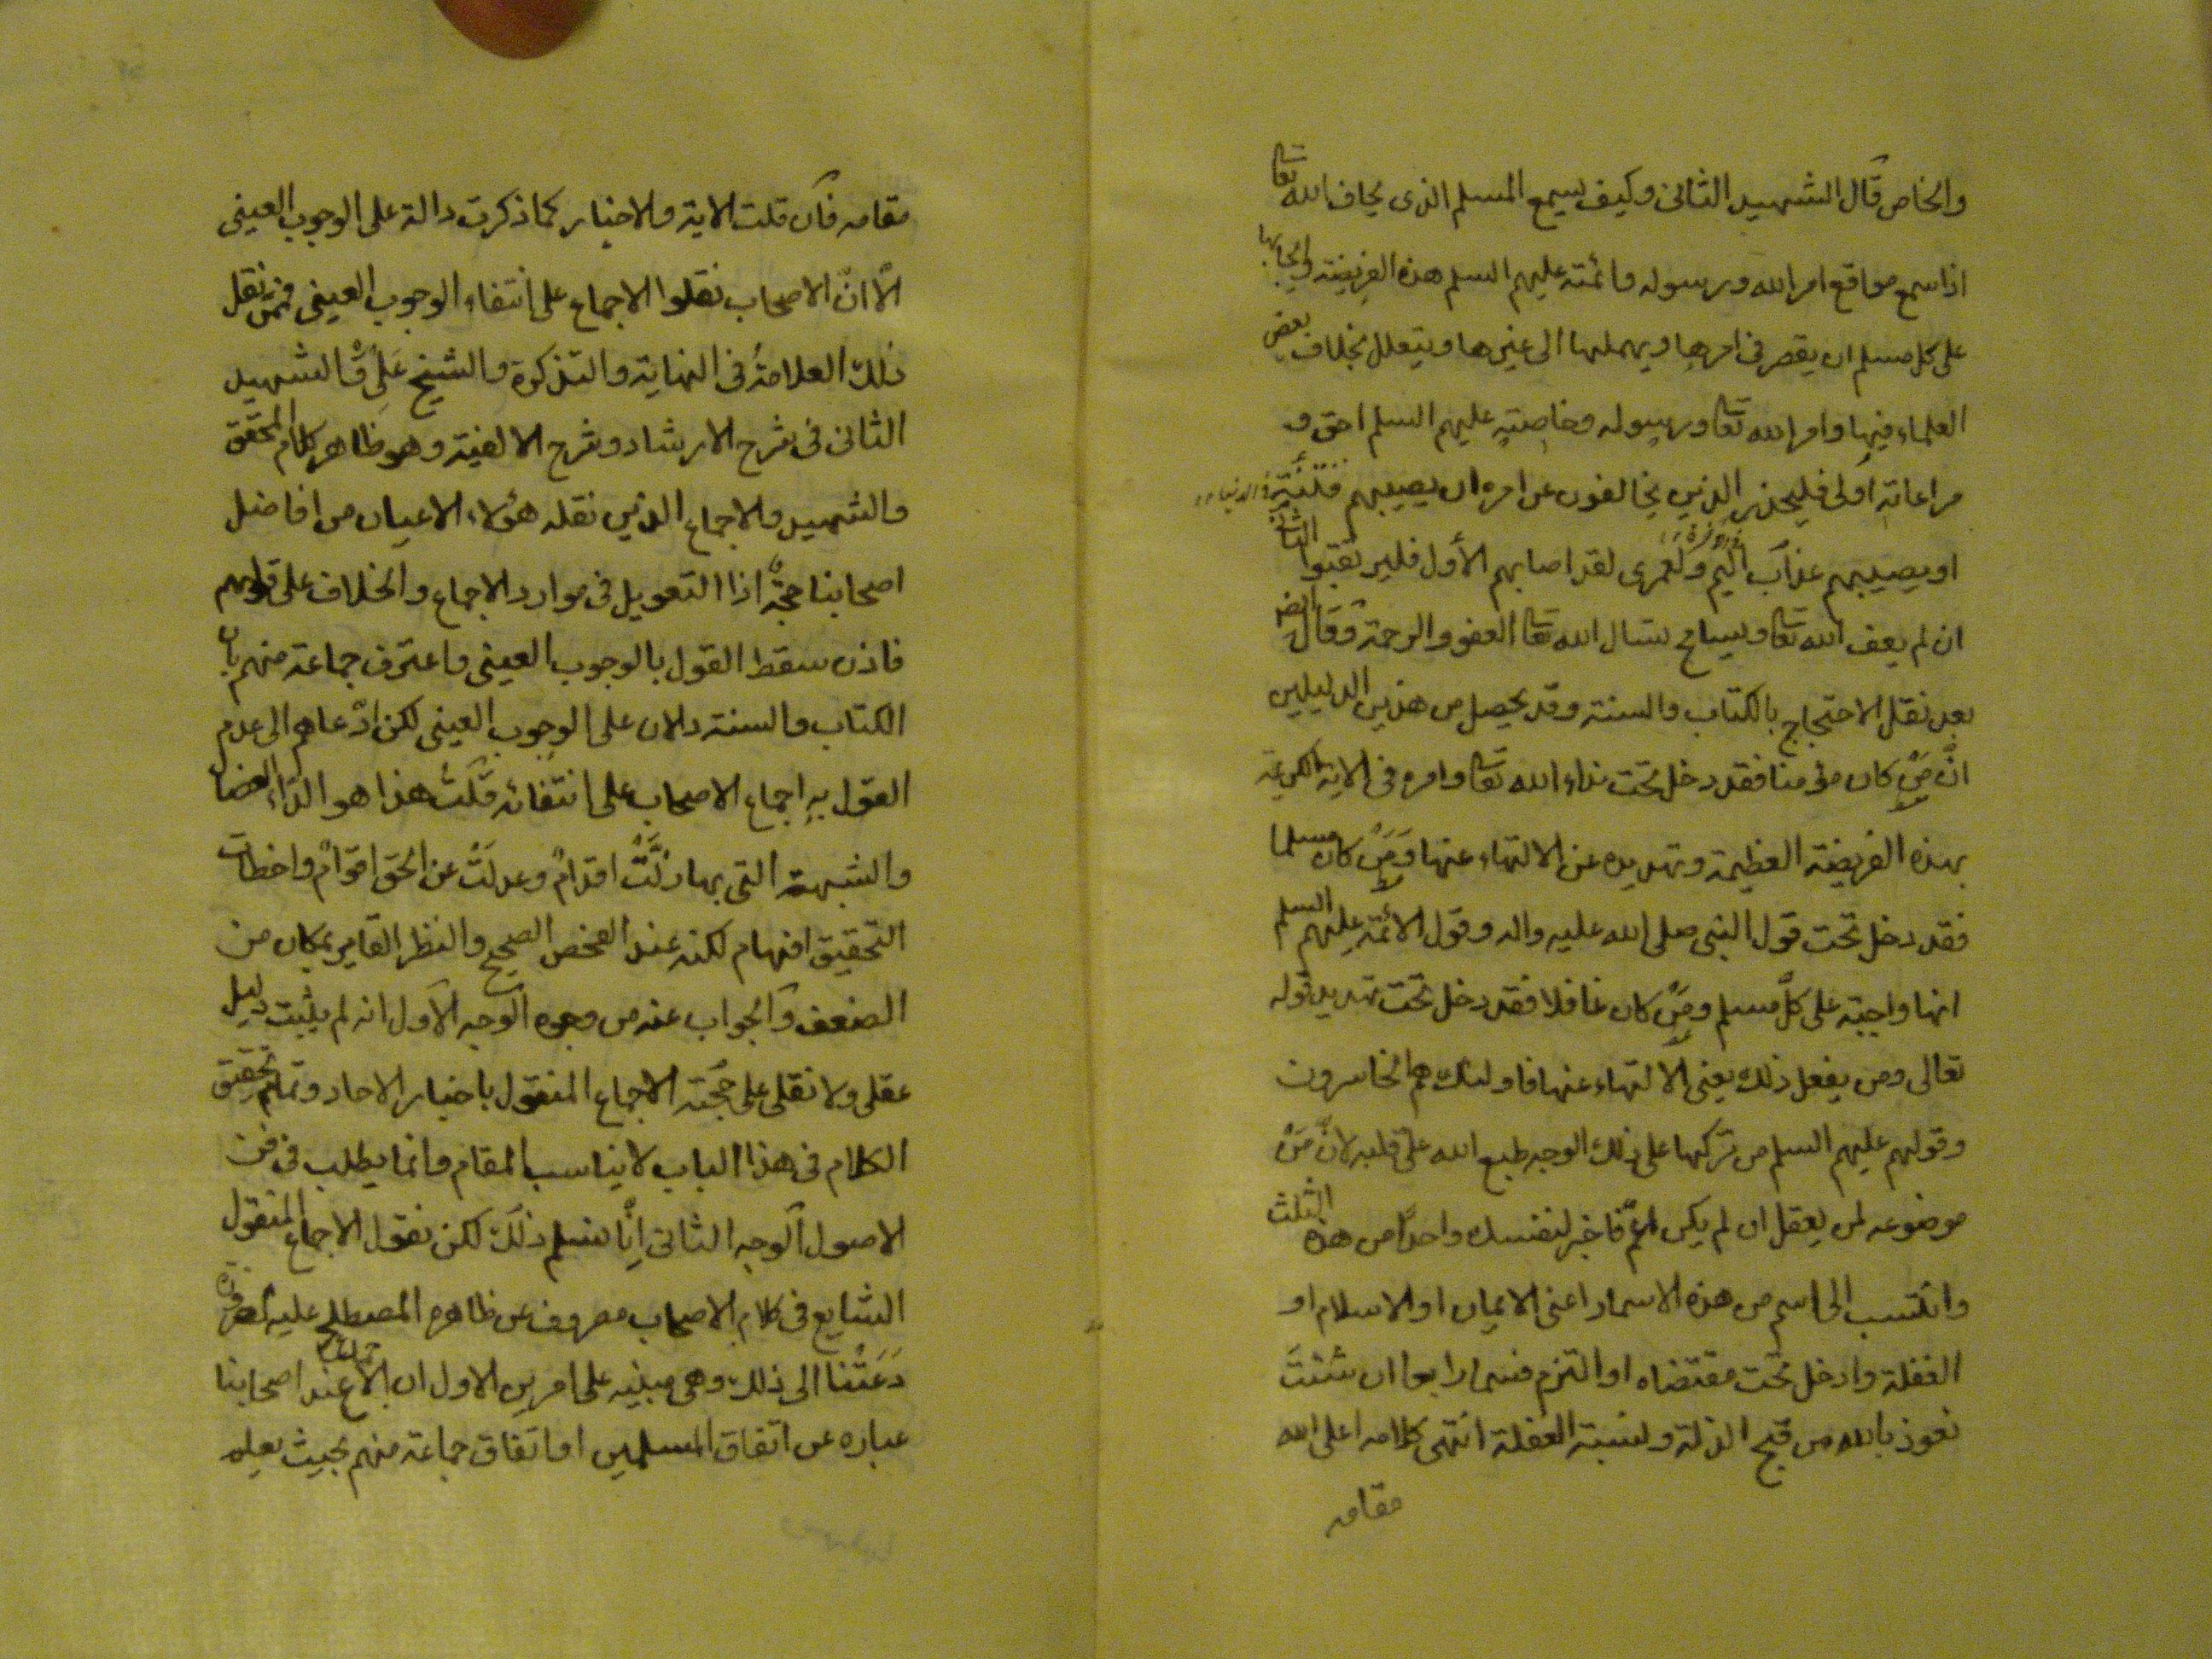 والخاص قال الشهيد الثانى وكيف يسع المسلم الذى يخاف الله تعا
اذا سمع مواقع امر الله ورسوله وائمته عليهم السلم هذه الفريضة وايجابها
على كل مسلم ان يقصر فى امرها ويهملها الى غيرها ويتعلل بخلاف بعض
العلماء فيها وامر الله تعا ورسوله وخاصته عليهم السلم احق و
مراعاته اولى فليحذر الذين يخالفون عن امره ان يصيبهم فتنة فى الدنيا
او يصيبهم عذاب اليم فى الاخرة ولعمرى لقد اصابهم الأول فليرتقبوا الثانى
ان لم يعف الله تعا ويسامح نسال الله تعا العفو والرحمة وقال ايضا
بعد نقل الاحتجاج بالكتاب والسنة وقد يحصل من هذين الدليلين
انّ مَن كان مؤمنا فقد دخل تحت نداء الله تعا وامره فى الاية الكريمة
بهذه الفريضة العظيمة وتهديده عن الالتهاء عنها ومَن كان مسلما
فقد دخل تحت قول النبى صلى الله عليه واله وقول الائمة عليهم السلم
انها واجبة على كلّ مسلم ومَن كان غافلا فقد دخل تحت تهديد قوله
تعالى ومن يفعل ذلك يعنى الالتهاء عنها فاولئك هم الخاسرون
وقولهم عليهم السلم من تركها على ذلك الوجه طبع الله على قلبه لانّ مَن
موضوعه لمن يعقل ان لم يكن اعمّ فاختر لنفسك واحدًا من هذه الثلث
وانتسب الى اسم من هذه الاسماء اعنى الايمان او الاسلام او
الغفلة وادخل تحت مقتضاه او التزم قسما رابعا ان شئتَ
نعوذ بالله من قبح الذلة ونسبة الغفلة انتهى كلامه اعلى الله
مقامه
مقامه فان قلت الاية والاخبار كما ذكرت دالة على الوجوب العينى
الّا انّ الاصحاب نقلوا الاجماع على انتفاء الوجوب العينى فممّن نقل
ذلك العلامةُ فى النهاية والتذكرة والشيخ عَلِى والشهيد
الثانى فى شرح الارشاد وشرح الالفية وهو ظاهر كلام المحقق
والشهيد والاجماع الذين نقله هؤلاء الاعيان من افاضل
اصحابنا حجّة اذا التعويل فى موارد الاجماع والخلاف على قولهم
فاذن سقط القول بالوجوب العينى واعترف جماعة منهم بان
الكتاب والسنة دالان على الوجوب العينى لكن ادّعاهم الى عدم
القول به اجماع الاصحاب على انتفائه قلتُ هذا هو الدّاء العضا
والشبهة التى بها زَلَّتْ اقدامٌ وعدلَتْ عن الحق اقوامٌ واخطات
التحقيق افهام لكنه عند الفحص الصحيح والنظر القاير بمكان من
الضعف والجواب عنه من وجوه الوجه الاول انه لم يثبت دليل
عقلى ولا نقلى على حُجّية الاجماع المنقول باخبار الاحاد وتمام تحقيق
الكلام فى هذا الباب لا يناسب المقام وانما يطلب فى فن
الاصول الوجه الثانى انّا نسلم ذلك لكن نقول الاجماع المنقول
الشايع فى كلام الاصحاب مصروف عن ظاهره المصطلح عليه لضرورة
دَعَتْنا الى ذلك وهى مبنيه على امرين الاول ان الاجماع عند اصحابنا
عباره عن اتفاق المسلمين او اتفاق جماعة منهم بحيث يعلم